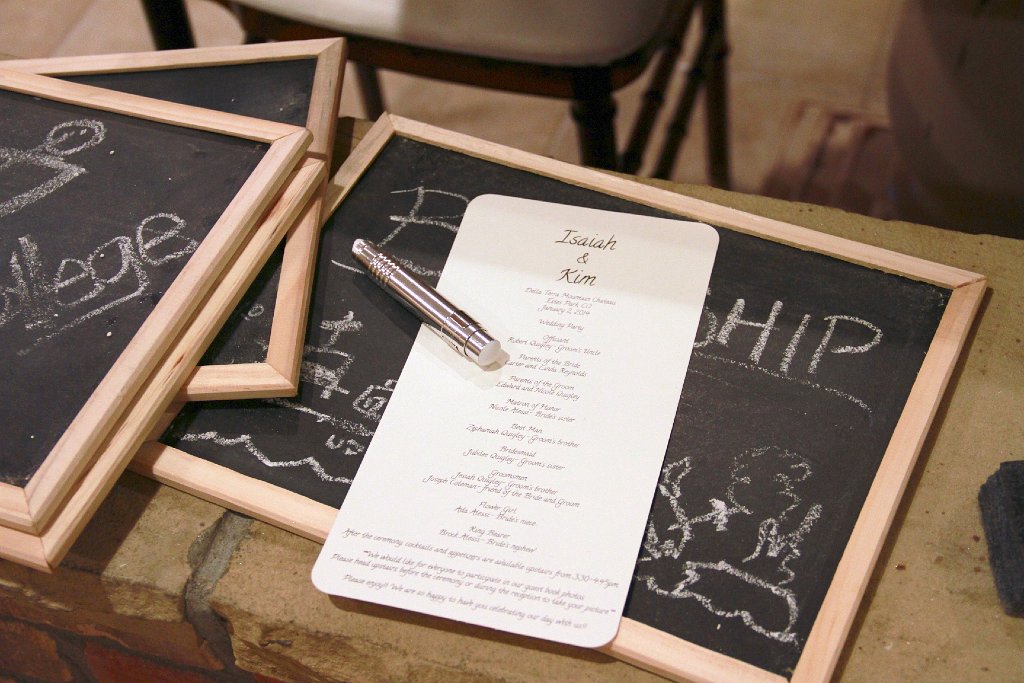 Isaiah
&
Kim
Della Terra Mountain Chateau
Estes Park CO
January 2, 2014
Wedding Party
Officiant
Robert Quigley-Groom's Uncle
Parents of the Bride
Carter and Linda Reynolds
Parents of the Groom
Edward and Nicole Quigley
Matron of Honor
Nicole Alessi- Bride's sister
Best Man
Zephaniah Quigley-Groom's brother
Bridesmaid
Jubilee Quigley-Groom's sister
Groomsmen
Josiah Quigley-Groom's brother
Joseph Coleman-friend of the Bride and Groom
Flower Girl
Ada Alessi- Bride's niece
Ring Bearer
Brock Alessi- Bride's nephew
After the ceremony cocktails and appetizers are available upstairs from 3:30-4:45pm
**We would like for everyone to participate in our guest book photos
Please head upstairs before the ceremony or during the reception to take your picture**
Please enjoy!! We are so happy to have you celebrating our day with us!!
HIP